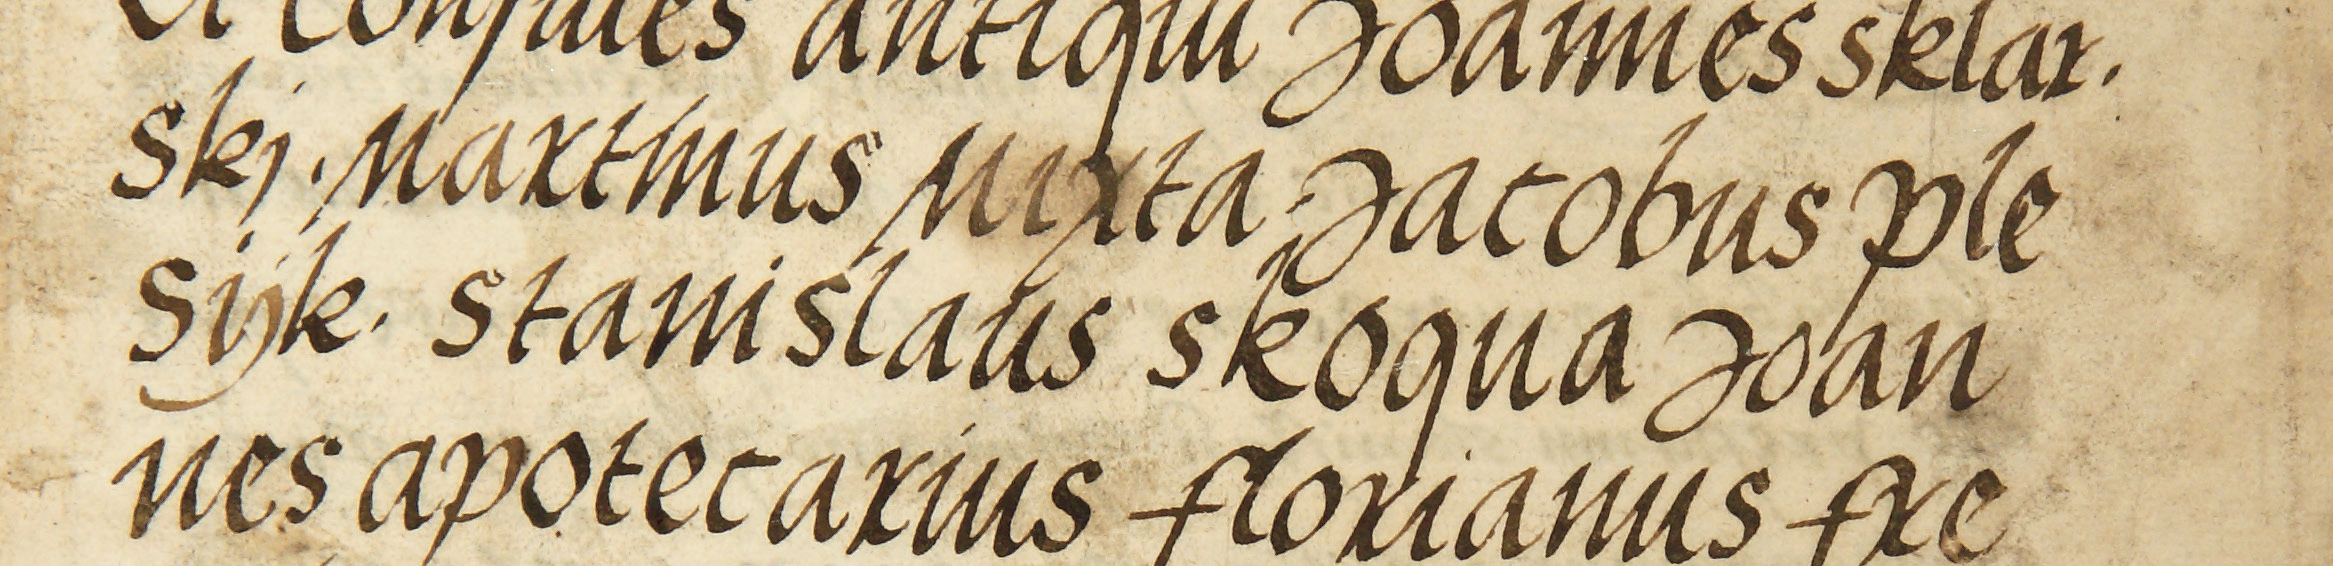 Et consules antiqui Joannes sklar.
skj. Martinus Mixta. Jacobus ple
sijk. stanislaus skoqua Joan
nes apotecarius florianus fre